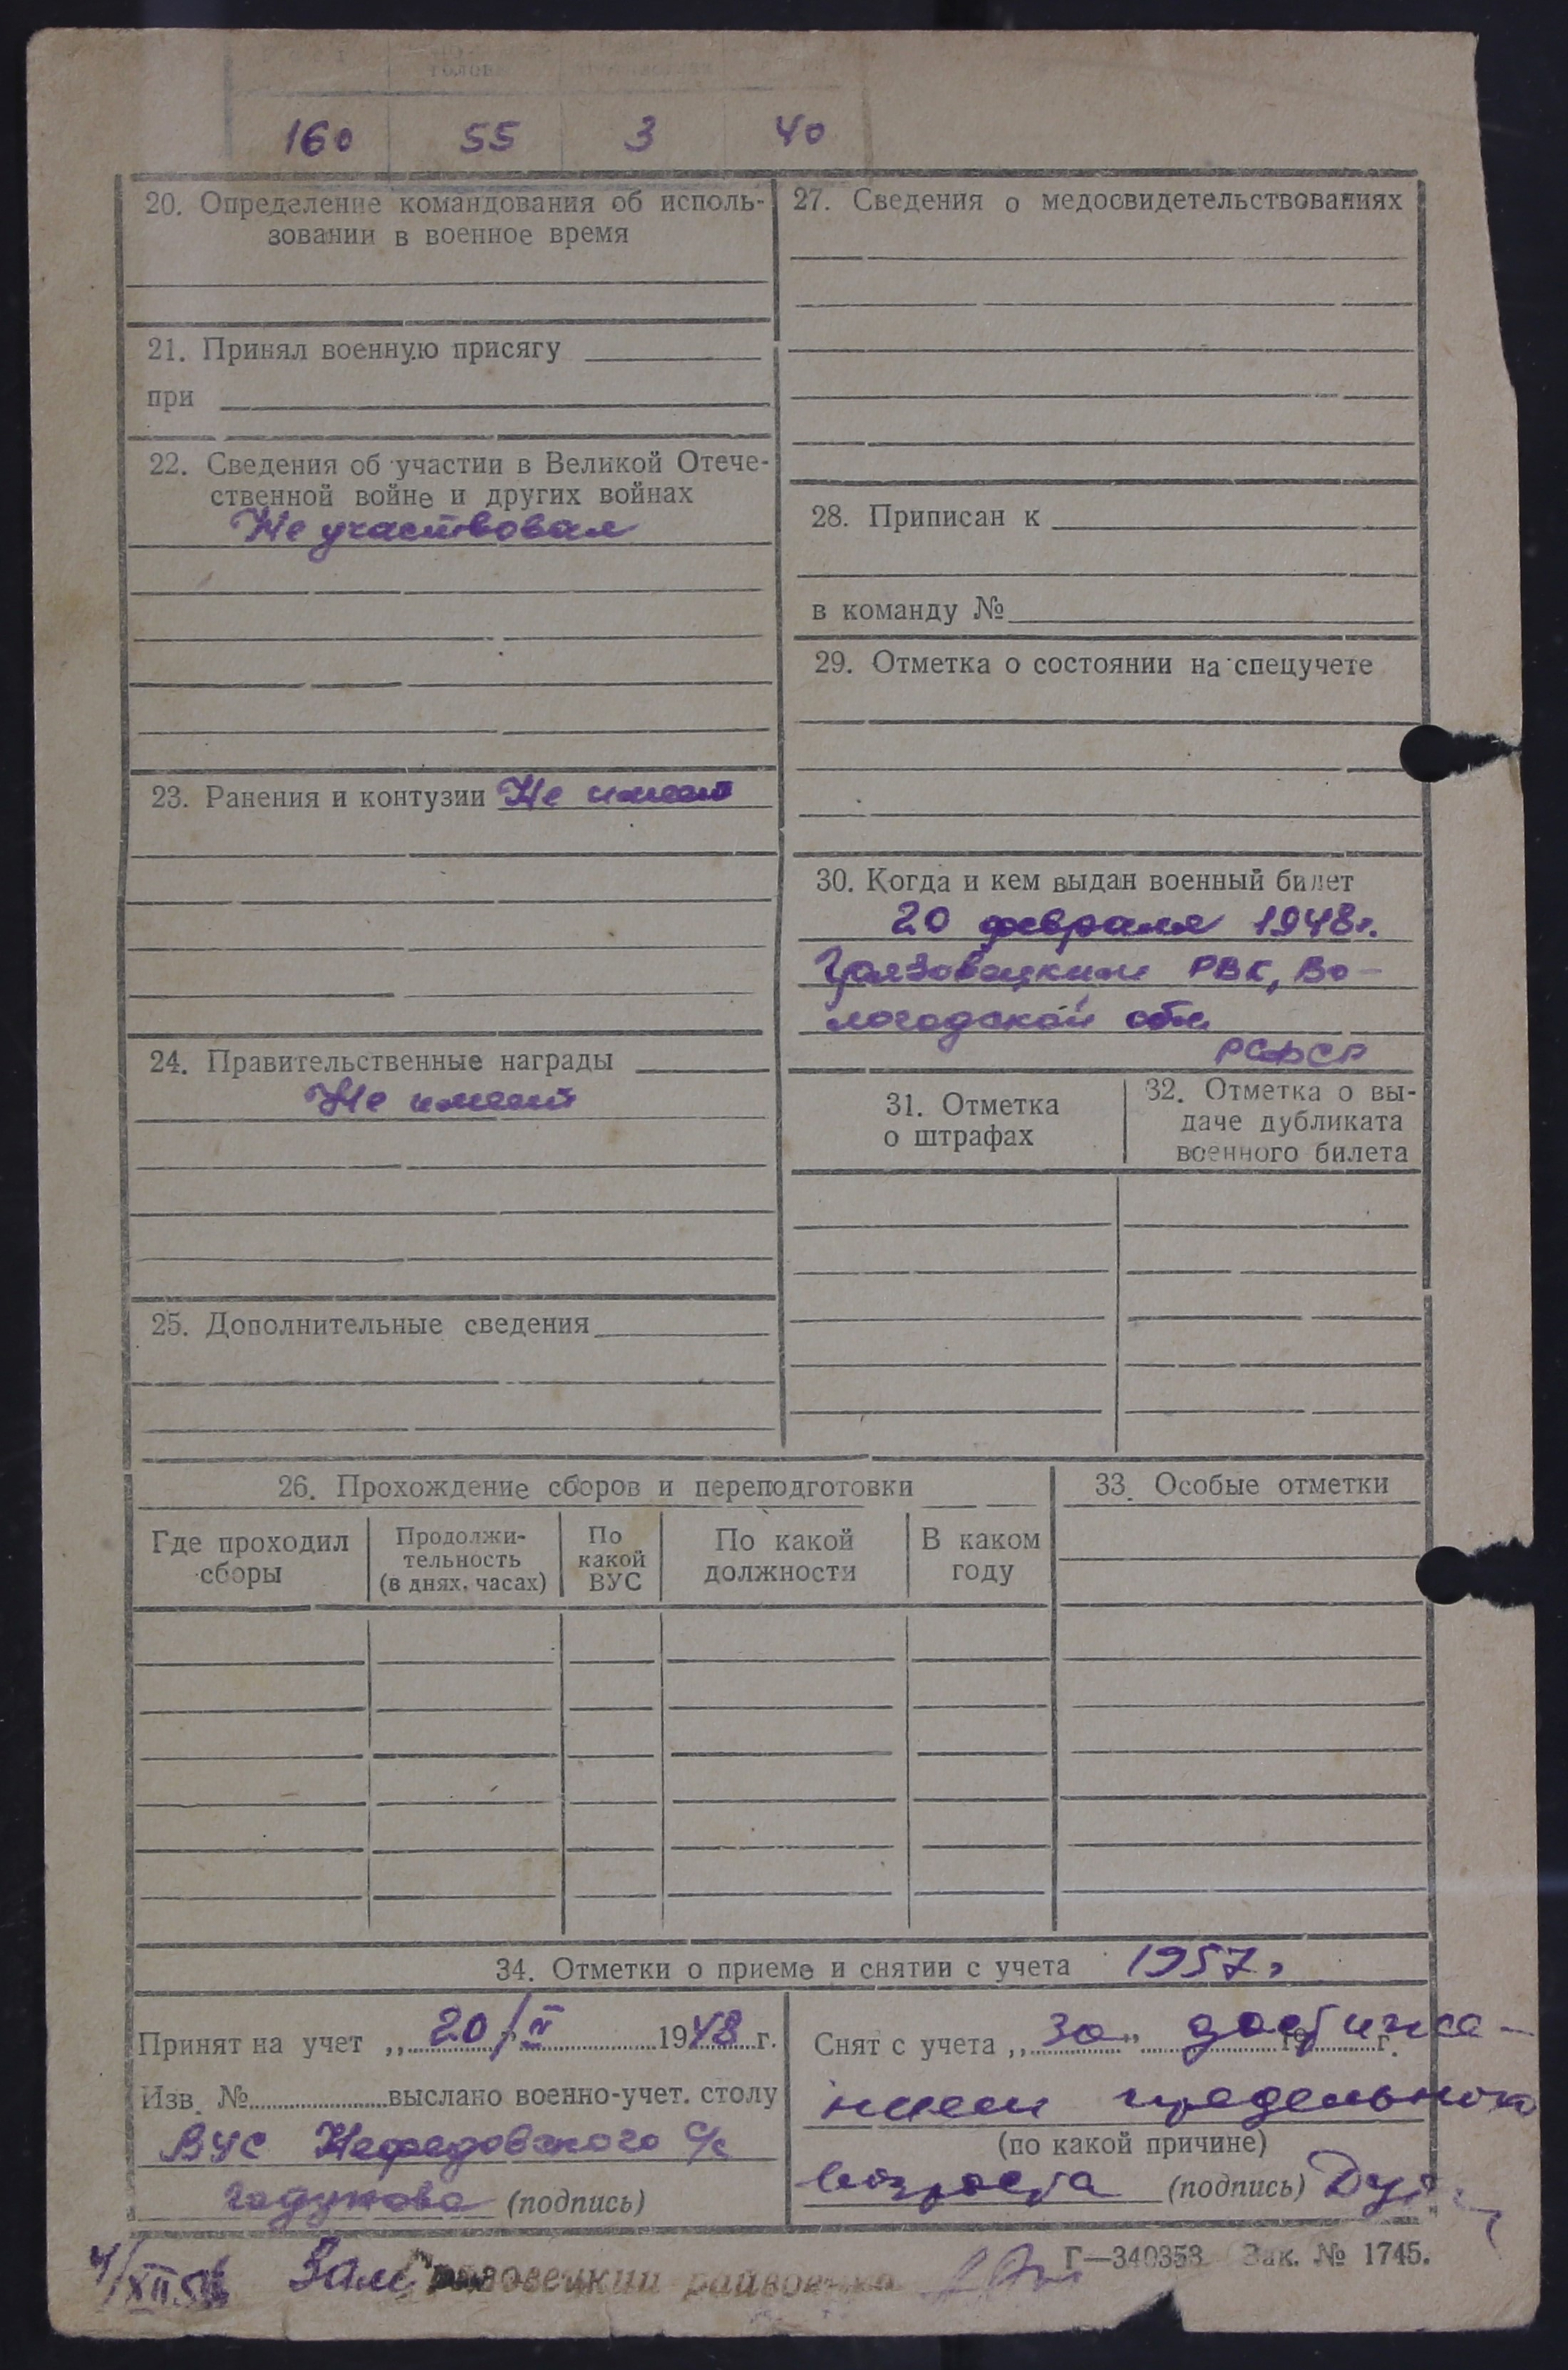 160 55 3 40
20. Определение командования об исполь-
зовании в военное время
21. Принял военную присягу
при
22. Сведения об участии в Великой Отече-
ственной войне и других войнах
Не участвовал
23. Ранения и контузии Не имеет
24. Правительственные награды
Не имеет
25. Дополнительные сведения
27. Сведения о медосвидетельствованиях
28. Приписан к
в команду №
29. Отметка о состоянии на спецучете
30. Когда и кем выдан военный билет
20 февраля 1948г.
Грязовецким РВК, Во-
логодской обл
РСФСР
31. Отметка
о штрафах
32. Отметка о вы-
даче дубликата
военного билета
26. Прохождение сборов и переподготовки
Где проходил
сборы
Продолжи-
тельность
(в днях, часах)
По
какой
ВУС
По какой
должности
В каком
году
33. Особые отметки
34. Отметки о приеме и снятии с учета 1957г
Принят на учет „20/II 1948 г.
Изв. № выслано военно-учет. столу
ВУС Нефедовского с/с
Годунова (подпись)
Снят с учета „за" достиже- 19 г.
нием предельного
(по какой причине)
возраста (подпись)
4/XII
Зам Грязовецкий райвоенком
Г—340353 Зак. № 1745.